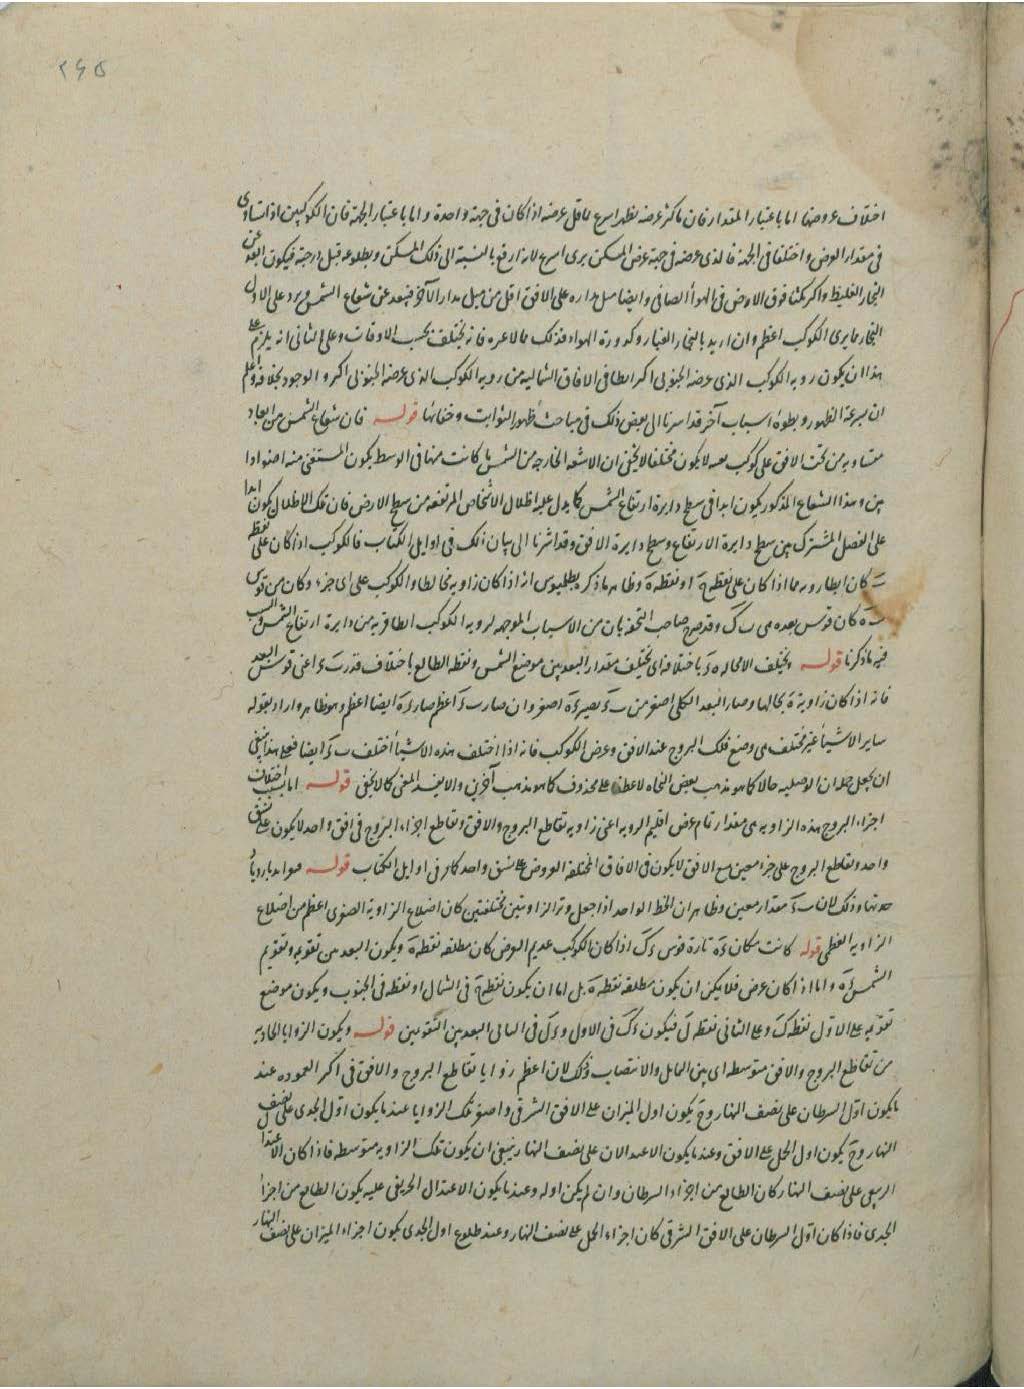 ۲۶۵
اختلاف عروضها اما باعتبار المقدار فان ما كثر عرضه يظهر اسرع مما قل عرضه اذا كان فى جهة واحدة واما باعتبار الجهة فان الكوكبين اذا تساوى
فى مقدار العرض واختلفا فى الجهة فالذى عرضه فى جهة عرض المسكن يرى اسرع لانه ارفع بالنسبة الى ذلك المسكن وبطلوعه قبل درجته فيكون ابعد عن
البخار الغليظ واكثر مكثا فوق الارض فى الهوا الصافى وايضا ميل مداره على الافق اقل من ميل مدار الآخر فيبعد عن شعاع الشمس ويرد على الاول
البخار ما يرى الكوكب اعظم وان اريد بالبخار الغبار وكدورة الهواء فذلك مما لا عبرة فانه يختلف بحسب الاوقات وعلى الثانى انه يلزم على
هذا ان يكون رويه الكوكب الذى عرضه الجنوبى اكبر ابطا فى الافاق الشماليه من رويه الكوكب الذى عرضه الجنوبى اكبر والوجود بخلافه واعلم
ان لسرعة الظهور وبطوه اسباب آخر قد اشرنا الى بعض ذلك فى مباحث ظهور الثوابت وخفائها قوله فان شعاع الشمس من ابعاد
متساويه من تحت الافق على كوكب بعينه لا يكون مختلفا لا يخفى ان الاشعه الخارجه من الشمس ما كانت منها فى الوسط يكون المستضئ منه اضوا
وهذا الشعاع المذكور يكون ابدا فى سطح دايرة ارتفاع الشمس كما يدل عليه اظلال الاشخاص المرتفعه من سطح الارض فان تلك الاظلال يكون ابدا
على الفصل المشترك بين سطح دايرة الارتفاع وسطح دايرة الافق وقد اشرنا الى بيان ذلك فى اوايل الكتاب فالكوكب اذا كان على نقطة
كان ابطا رويه مما اذا كان على نقطة او نقطة وظاهر ما ذكره بطلميوس انه اذا كان زاويه مخالطا والكوكب على اى جزء وكان من قوس
كان قوس بعده هى ب ك وقد صرح صاحب التحفه بان من الاسباب الموجبه لرويه الكوكب الطافر به من دايرة ارتفاع الشمس والسبب
فيه ما ذكرنا قوله يختلف لا محالة ه ء باختلافه اى يختلف مقدار البعد بين موضع الشمس ونقطه الطالع باختلاف قدر ب ء اعنى قوس البعد
فانه اذا كان زاوية ه بحالها وصار البعد الكلى اصغر من ب ء يصير ء ه اصغر وان صار ب ء اعظم صار ء ه ايضا اعظم وهو ظاهر واراد بقوله
ساير الاشيا غير مختلف هى وضع فلك البروج عند الافق وعرض الكوكب فانه اذا اختلف هذه الاشيا اختلف ب ء ايضا فعلى هذا ينبغى
ان يجعل ان الوصليه حالا كما هو مذهب بعض النحاه لا عطفا على محذوف كما هو مذهب آخرين والا يفسد المعنى كما لا يخفى قوله اما بسبب اختلاف
اجزاء البروج هذه الزاويه هى مقدار تمام عرض اقليم الرويه اعنى زاويه تقاطع البروج والافق وتقاطع اجزاء البروج فى افق واحد لا يكون على نسق
واحد وتقاطع البروج على جزء معين مع الافق لا يكون فى الافاق المختلفه العروض على نسق واحد كما مر فى اوايل الكتاب قوله
وذلك لان ب ء مقدار معين وظاهر ان الخط الواحد اذا جعل وتر الزاويتين مختلفتين كان اضلاع الزاوية الصغرى اعظم من اضلاع
الزاويه العظمى قوله كانت مكان ء ه تارة قوس ء ك اذا كان الكوكب عديم العرض كان مطلعه نقطة ه ويكون البعد بين تقويمه وتقويم
الشمس ء ه واما اذا كان عرض فلا يمكن ان يكون مطلعه نقطة ه بل اما ان يكون نقطة فى الشمال او نقطه فى الجنوب ويكون موضع
تقويمه على الاول نقطة ك وعلى الثانى نقطه ل فيكون ء ك فى الاول و ء ل فى الثانى البعد بين التقويمين قوله ويكون الزوايا الحادثه
من تقاطع البروج والافق متوسطه اى بين المايل والانتصاب وذلك لان اعظم زوايا تقاطع البروج والافق فى اكثر المعموره عند
ما يكون اول السرطان على نصف النهار وح يكون اول الميزان على الافق الشرقى واصغر تلك الزوايا عند ما يكون اول الجدى على نصف
النهار وح يكون اول الحمل على الافق وعند ما يكون الاعتدالان على نصف النهار ينبغى ان يكون تلك الزاويه متوسطه فاذا كان الاعتدال
الربيعى على نصف النهار كان الطالع من اجزاء السرطان وان لم يكن اوله وعند ما يكون الاعتدال الخريفى عليه يكون الطالع من اجزاء
الجدى فاذا كان اول السرطان على الافق الشرقى كان اجزاء الحمل على نصف النهار وعند طلوع اول الجدى يكون اجزاء الميزان على نصف النهار